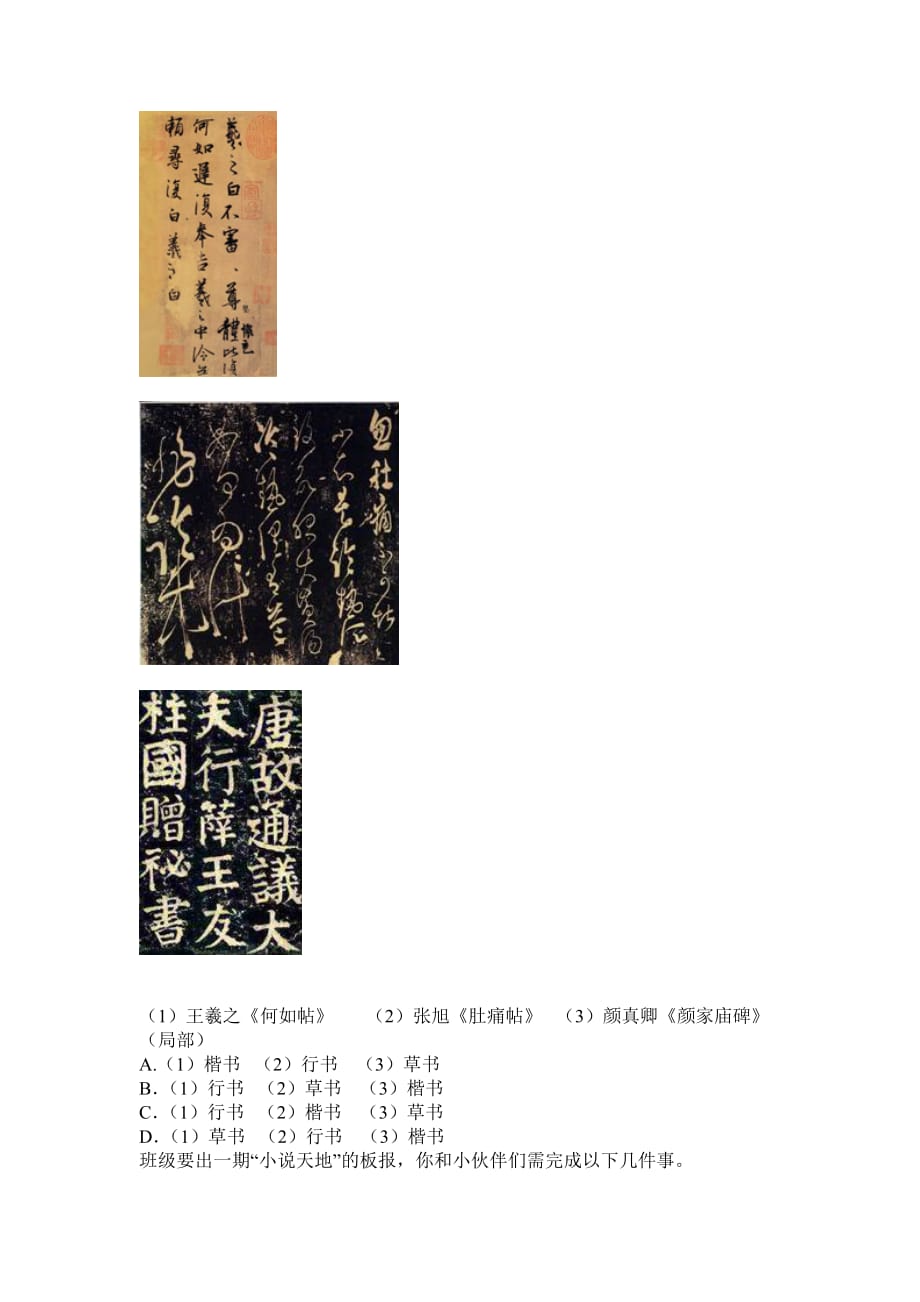 羲之白不審、尊體比復
何如遲復奉告羲之中冷無
賴尋復白羲之白
忽肚痛不可堪
不知是冷熱所
致欲服大黃湯
冷熱俱有益
如何爲計
非臨床
唐故通議大
夫行薛王友
柱國贈祕書
（1）王羲之《何如帖》　　（2）张旭《肚痛帖》　（3）颜真卿《颜家庙碑》
（局部）
A.（1）楷书　（2）行书　（3）草书
B.（1）行书　（2）草书　（3）楷书
C.（1）行书　（2）楷书　（3）草书
D.（1）草书　（2）行书　（3）楷书
班级要出一期“小说天地”的板报，你和小伙伴们需完成以下几件事。